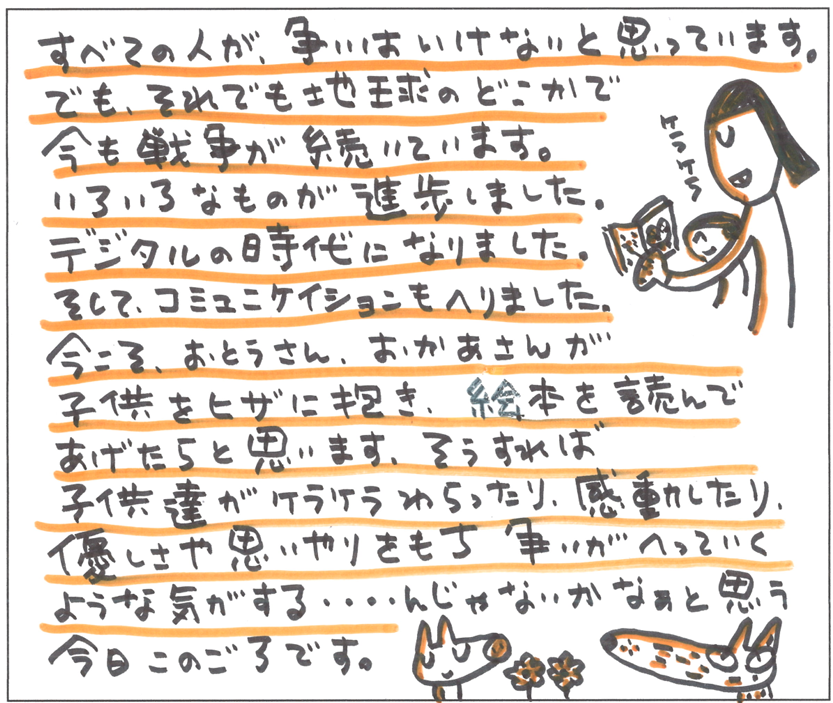 すべての人が、争いはいけないと思っています。
でも、それでも地球のどこかで
今も戦争が続いています。
いろいろなものが進歩しました。
デジタルの時代になりました。
そして、コミュニケイションもへりました。
今こそ、おとうさん、おかあさんが
子供をヒザに抱き、絵本を読んで
あげたらと思います、そうすれば
子供達がケラケラわらったり、感動したり、
優しさや思いやりをもち争いがへっていく
ような気がする・・・・んじゃないかなぁと思う
今日このごろです。
ケラケラ